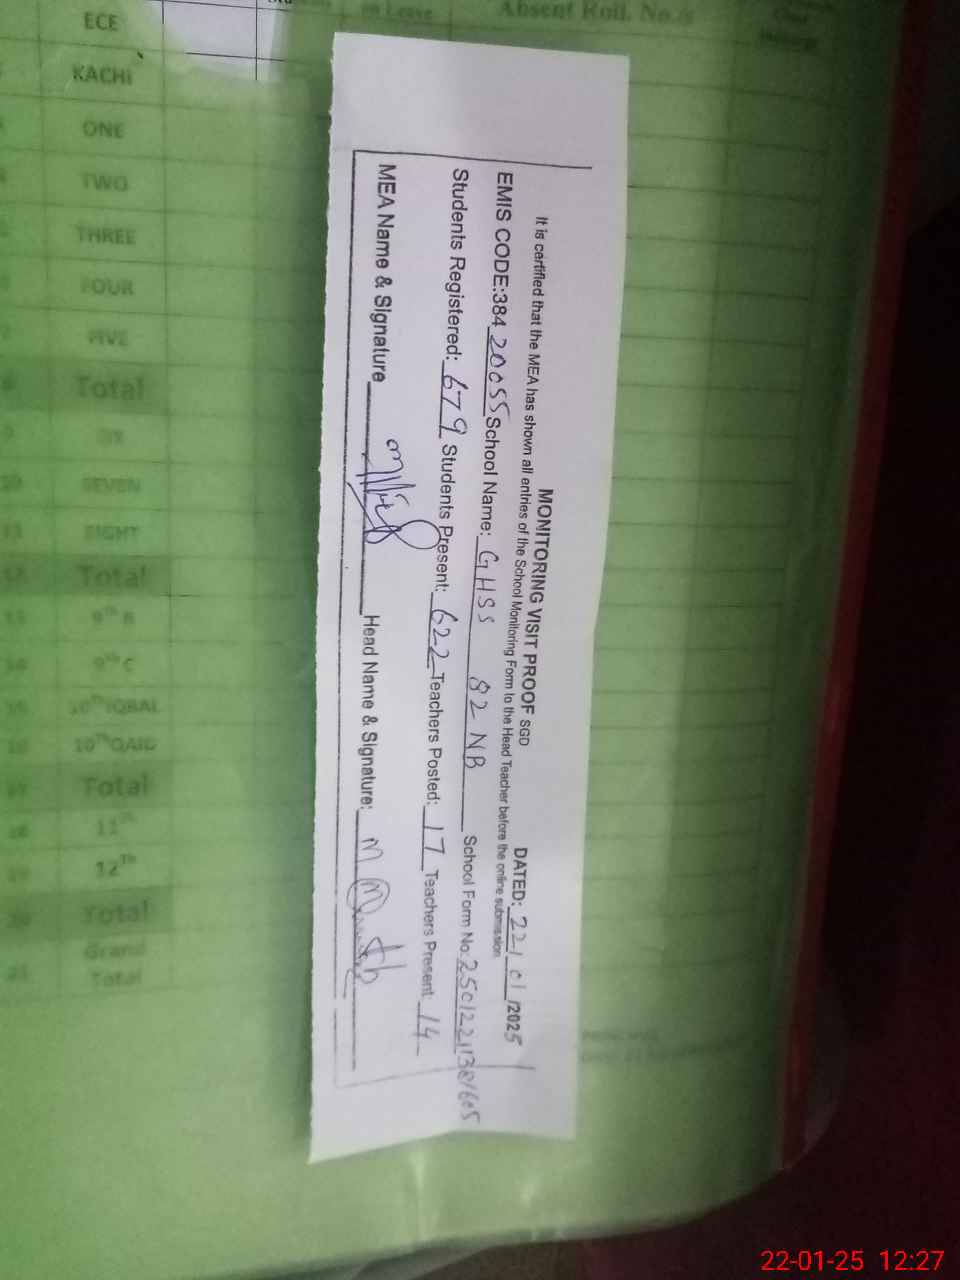 Absent Roll. No./s
on Leave
ECE
KACHI
ONE
TWO
THREE
FOUR
FIVE
Total
SIX
SEVEN
EIGHT
Total
9th B
9th C
10th IQBAL
10th QAID
Total
11th
12th
Total
Grand
Total
MONITORING VISIT PROOF SGD DATED: 22/01/2025
It is certified that the MEA has shown all entries of the School Monitoring Form to the Head Teacher before the online submission
EMIS CODE:384 20055 School Name: GHSS 82 NB School Form No:
Students Registered: 679 Students Present: 622 Teachers Posted: 17 Teachers Present: 14
MEA Name & Signature Head Name & Signature: M
22-01-25 12:27